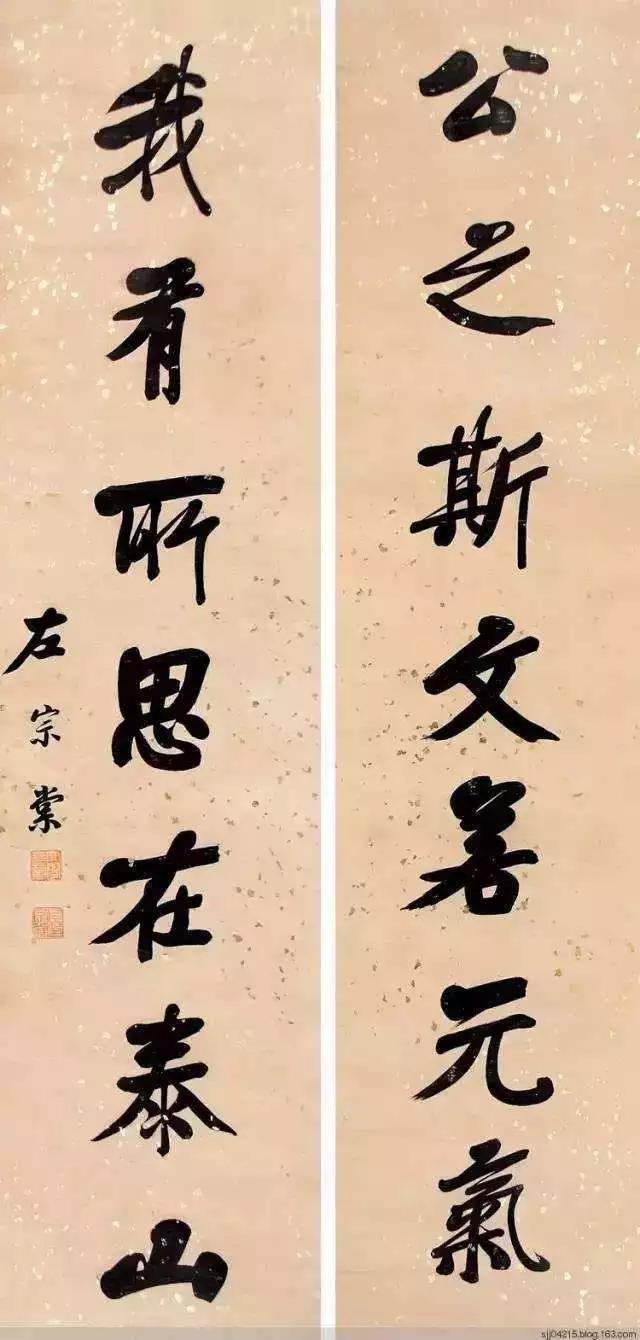 公之斯文若元氣
我有所思在泰山
左宗棠
sjj04215.blog.163.com